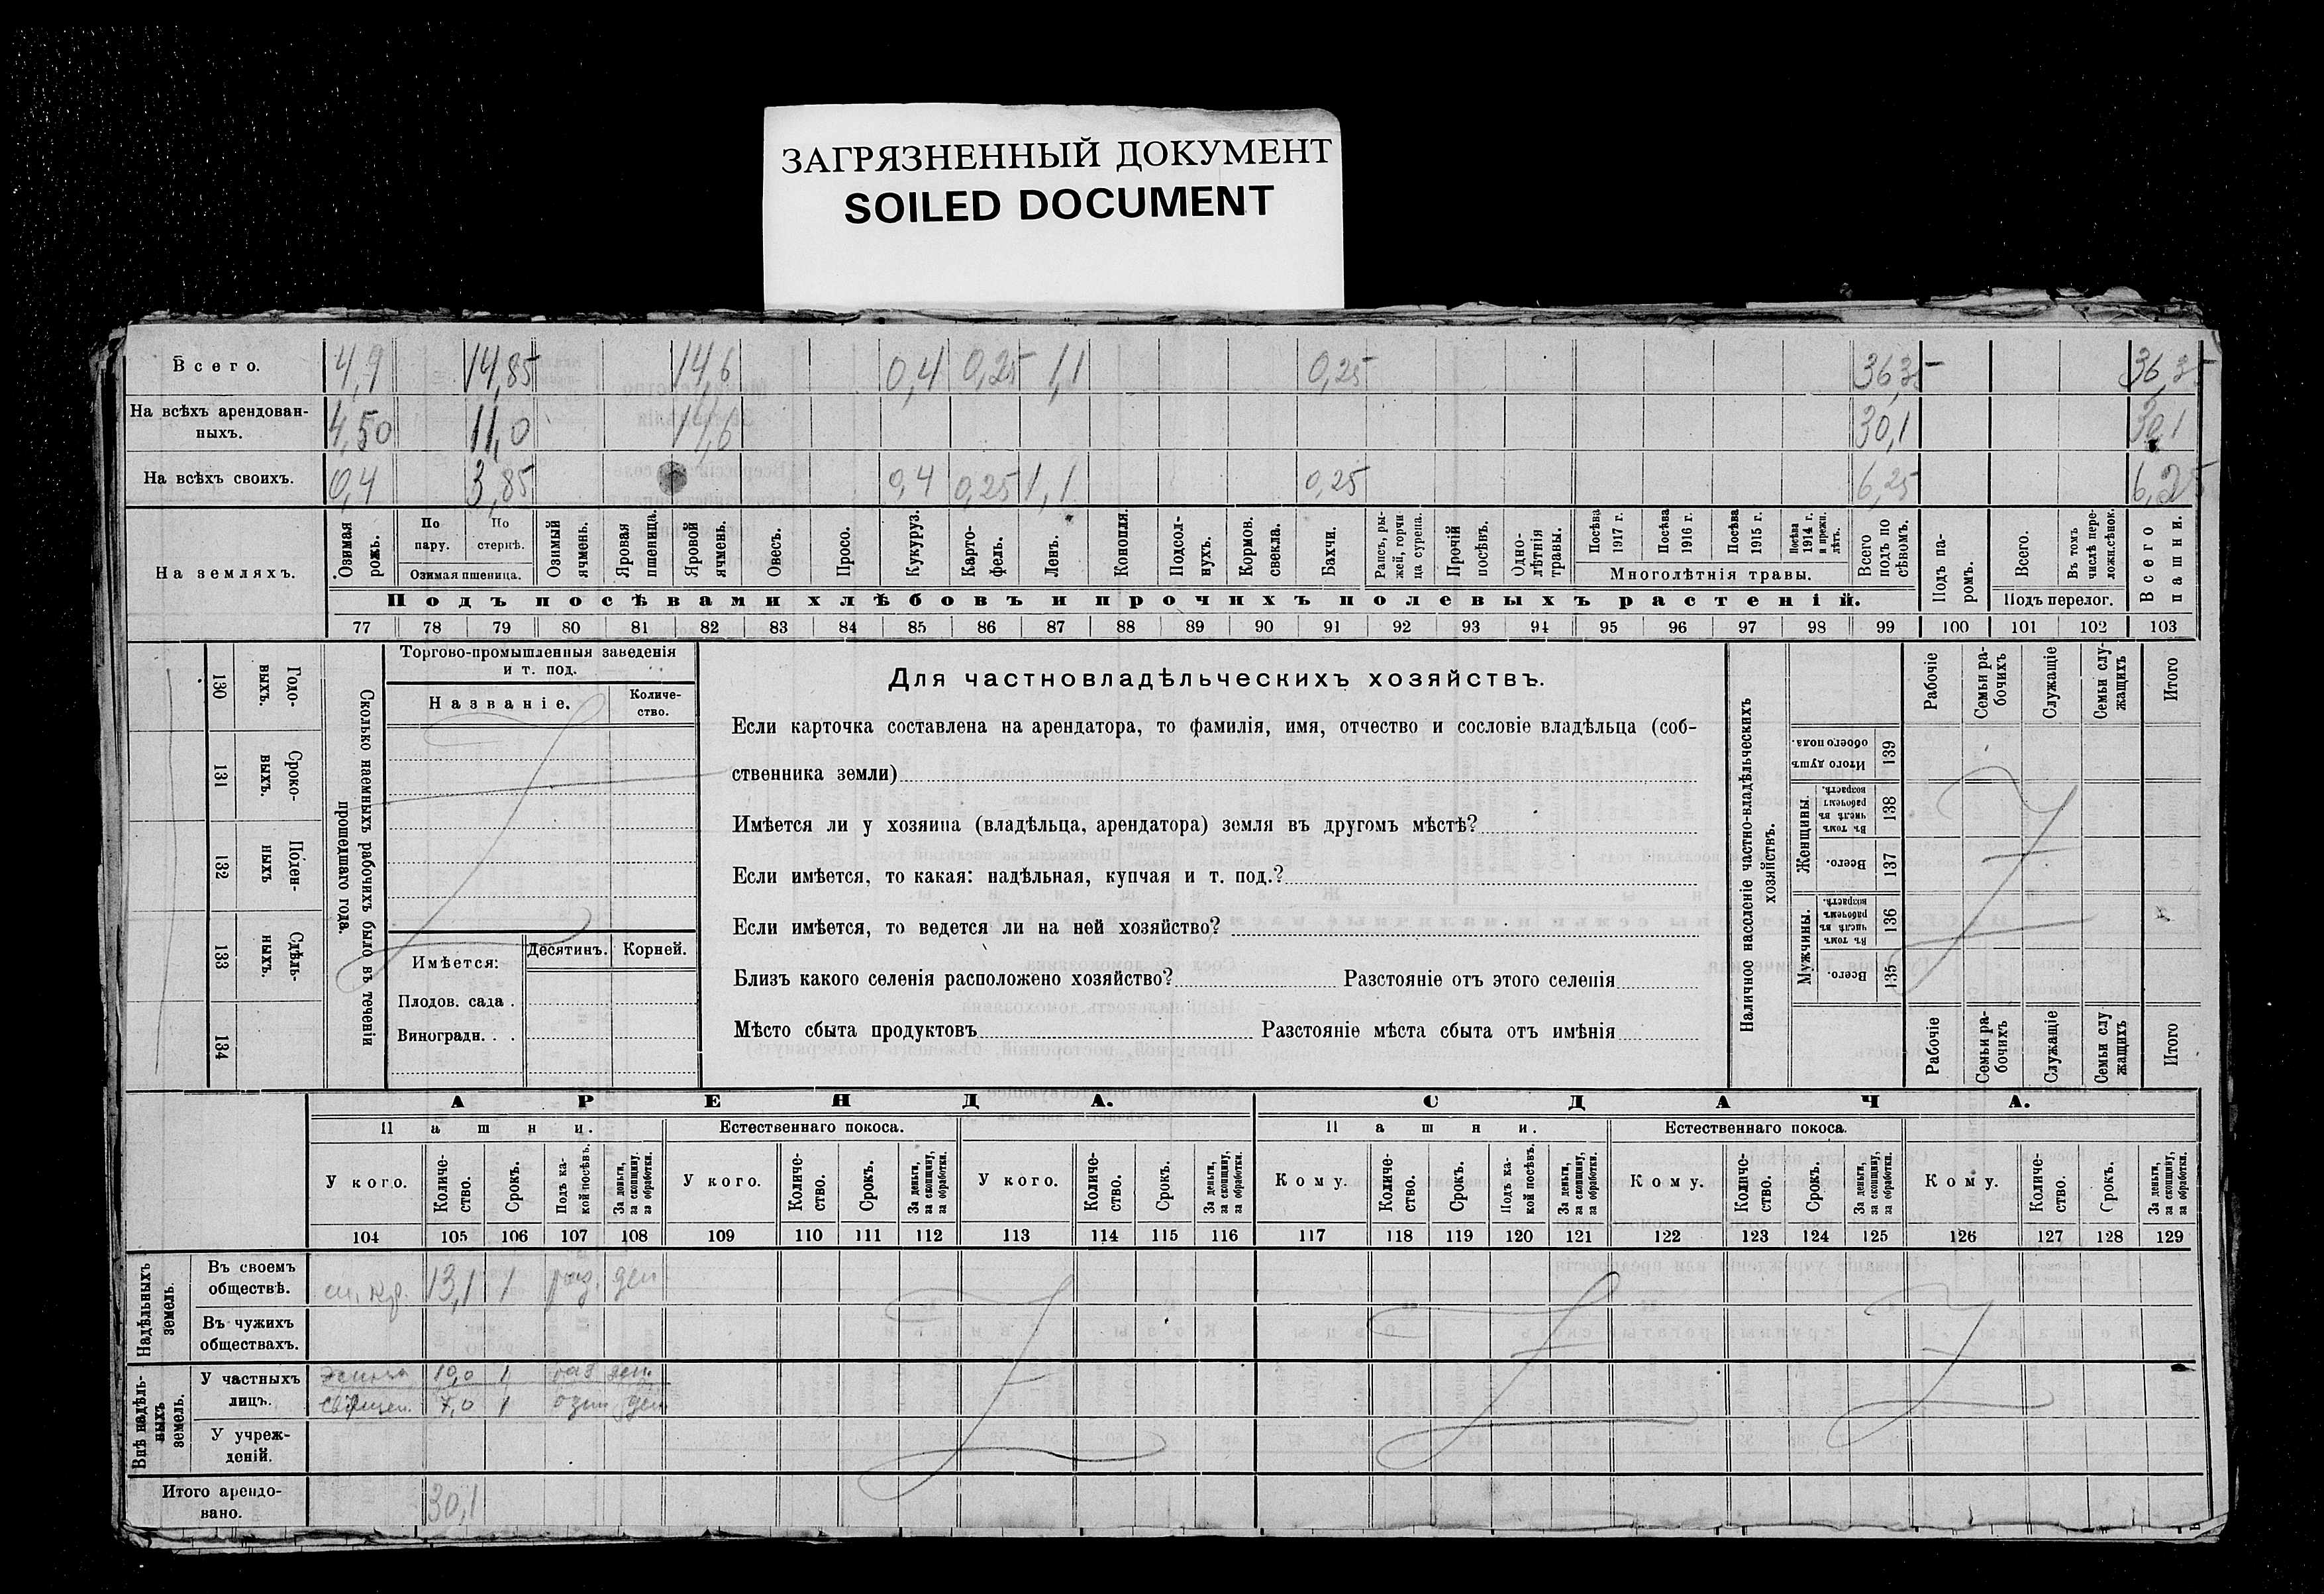 ЗАГРЯЗНЕННЫЙ ДОКУМЕНТ
SOILED DOCUMENT
Всего. 4,9 14,85 14,6 0,4 0,25 1,1 0,25 36,35 36,35
На всѣхъ арендован-
ныхъ. 4,50 11,0 14,6 30,1 30,1
На всѣхъ своихъ. 0,4 3,85 0,4 0,25 1,1 0,25 6,25 6,25
На земляхъ.
Озимая рожь.
По пару.
По стернѣ.
Озимая пшеница.
Озимый ячмень.
Яровая пшеница.
Яровой ячмень.
Овесъ.
Просо.
Кукуруз.
Карто-фель.
Ленъ.
Конопля
Подсол-нухъ.
Кормов. свекла.
Бахчи.
Рапсъ, ры-жей, горчи ца сурепа.
Прочій посѣвъ.
Одно-лѣтнія травы.
Посѣва 1917 г.
Посѣва 1916 г.
Посѣва 1915 г.
Посѣва 1914 г. и прежн. лѣтъ.
Многолѣтнія травы.
Всего подъ по сѣвомъ.
Подъ па-ромъ.
Всего.
Въ томъ числѣ пере-ложн.сѣнок.
Подъ перелог.
Всего пашни.
Подъ посѣвами хлѣбовъ и прочихъ полевыхъ растеній.
77 78 79 80 81 82 83 84 85 86 87 88 89 90 91 92 93 94 95 96 97 98 99 100 101 102 103
130 Годо-ныхъ.
131 Сроко-выхъ.
132 Поден-ныхъ
133 Сдѣль-ныхъ.
134
Сколько наемныхъ рабочихъ было въ теченіи
прошедшаго года.
Торгово-промышленныя заведенія
и т. под.
Названіе.
Количе-
ство.
Имѣется:
Десятинъ.
Корней.
Плодов. сада .
Виноградн. . .
Для частновладѣльческихъ хозяйствъ.
Если карточка составлена на арендатора, то фамилія, имя, отчество и сословіе владѣльца (соб-
ственника земли)
Имѣется ли у хозяина (владѣльца, арендатора) земля въ другомъ мѣстѣ?
Если имѣется, то какая: надѣльная, купчая и т. под.?
Если имѣется, то ведется ли на ней хозяйство?
Близъ какого селенія расположено хозяйство? Разстояніе отъ этого селенія
Мѣсто сбыта продуктовъ Разстояніе мѣста сбыта отъ имѣнія
Наличное населеніе частно-владѣльческихъ
хозяйствъ.
Рабочіе
Семьи ра-бочихъ
Служащіе
Семьи слу-жащихъ
Итого
Итого душъ обоего пола. 139
Женщины.
Въ томъ числѣ въ рабочемъ возрастѣ. 138
Всего. 137
Мужчины.
Въ томъ числѣ въ рабочемъ возрастѣ. 136
Всего. 135
Рабочіе
Семьи ра-бочихъ
Служащіе
Семьи слу жащихъ
Итого
АРЕНДА. СДАЧА.
Пашни. Естественнаго покоса. Пашни. Естественнаго покоса.
У кого.
Количе-ство.
Срокъ.
Подъ ка-кой посѣвъ.
За деньги, за скопщину, за обработки.
У кого.
Количе-ство.
Срокъ.
За деньги, за скопщину, за обработки.
У кого.
Количе-ство.
Срокъ.
За деньги, за скопщину, за обработки.
Кому.
Количе-ство.
Срокъ.
Подъ ка-кой посѣвъ.
За деньги, за скопщину, за обработки.
Кому.
Количе-ство.
Срокъ.
За деньги, за скопщину, за обработки.
Кому.
Количе-ство.
Срокъ.
За деньги, за скопщину, за обработки.
104 105 106 107 108 109 110 111 112 113 114 115 116 117 118 119 120 121 122 123 124 125 126 127 128 129
Надѣльныхъ земель.
Въ своемъ
обществѣ. 13,1 1 ден.
Въ чужихъ
обществахъ.
Внѣ надѣль-ныхъ земель.
У частныхъ 10,0 1 ден.
лицъ. 7,0 1 озим ден
У учреж-
деній.
Итого арендо-
вано. 30,1